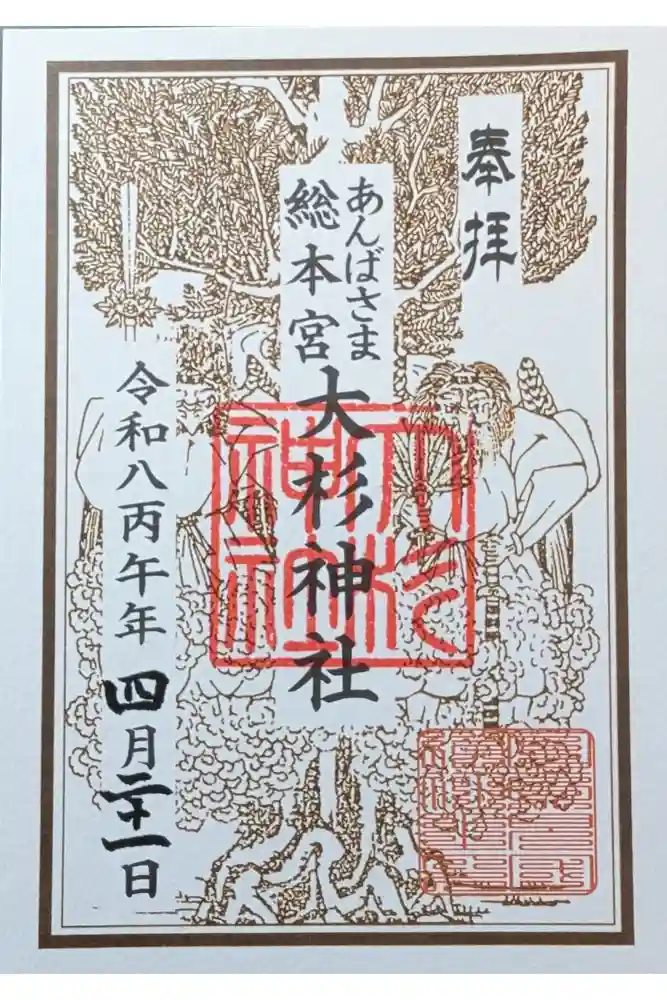 奉拝
あんばさま
総本宮
大杉神社
令和八丙午年四月二十一日
大杉
神社